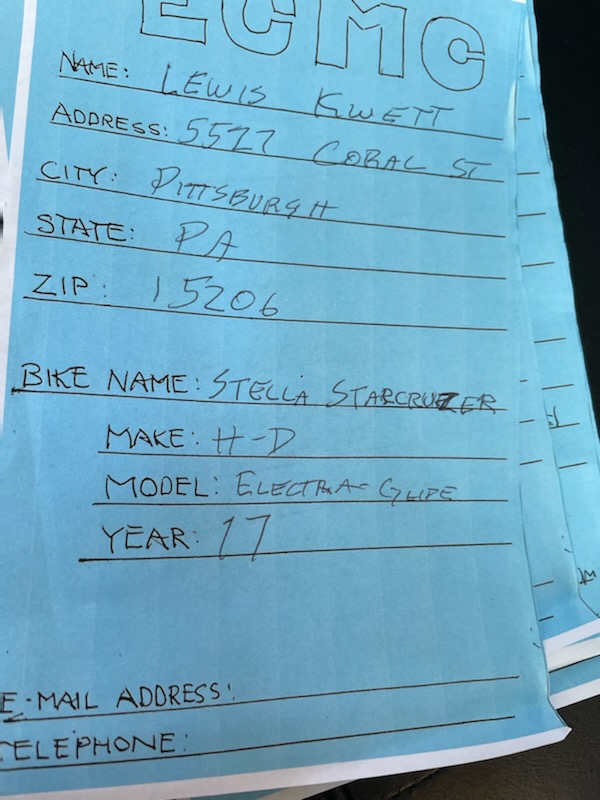 ECMC
NAME: LEWIS KWETT
ADDRESS: 5527 CORAL ST
CITY: PITTSBURGH
STATE: PA
ZIP: 15206
BIKE NAME: STELLA STARCRUZER
MAKE: H-D
MODEL: ELECTRA-GLIDE
YEAR: 17
E-MAIL ADDRESS:
TELEPHONE: